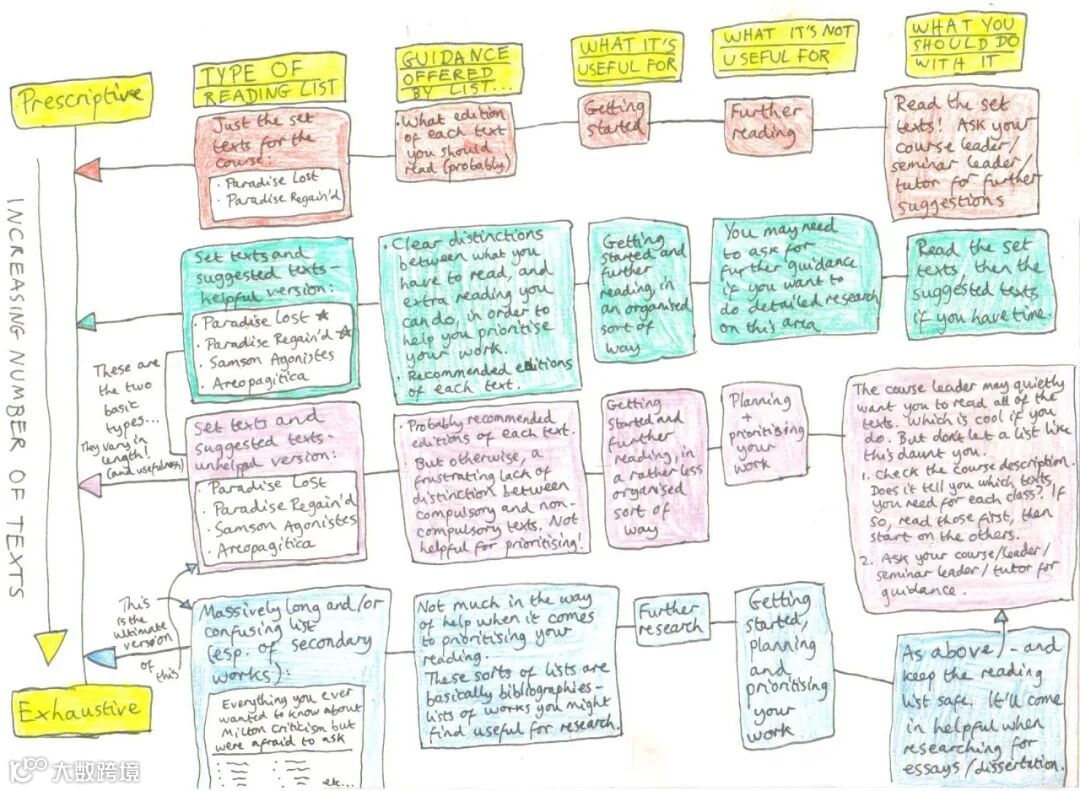 Prescriptive
INCREASING NUMBER OF TEXTS
Exhaustive
TYPE OF
READING LIST
GUIDANCE
OFFERED
BY LIST...
WHAT IT'S
USEFUL FOR
WHAT IT'S NOT
USEFUL FOR
WHAT YOU
SHOULD DO
WITH IT
Just the set
texts for the
course:
· Paradise Lost
· Paradise Regain'd
· What edition
of each text
you should
read (probably)
Getting
started
Further
reading
Read the set
texts! ASK your
course leader/
seminar leader/
tutor for further
suggestions
Set texts and
suggested texts-
helpful version:
· Paradise Lost ☆
· Paradise Regain'd ☆
· Samson Agonistes
· Areopagitica
· Clear distinctions
between what you
have to read, and
extra reading you
can do, in order to
help you prioritise
your work.
· Recommended editions
of each text.
Getting
started and
further
reading, in
an organised
sort of
way
You may need
to ask for
further guidance
if you want to
do detailed research
on this area
Read the set
texts, then the
suggested texts,
if you have time.
These are
the two
basic
types...
They vary in
length!
(and usefulness)
Set texts and
suggested texts-
unhelpful version:
· Paradise Lost
· Paradise Regain'd
· Samson Agonistes
· Areopagitica
· Probably recommended
editions of each text.
· But otherwise, a
frustrating lack of
distinction between
compulsory and non-
compulsory texts. Not
helpful for prioritising!
Getting
started and
further
reading, in
a rather less
organised
sort of
way
Planning
+
prioritising
your
work
The course leader may quietly
want you to read all of the
texts. Which is cool if you
do. But don't let a list like
this daunt you.
1. Check the course description.
Does it tell you which texts
you need for each class? If
so, read those first, then
start on the others.
2. Ask your course/leader/
seminar leader/tutor for
guidance.
This
is the
ultimate
version
of this
Massively long and/or
confusing list
(esp. of secondary
works):
Everything you ever
wanted to know about
Milton criticism but
were afraid to ask
etc...
Not much in the way
of help when it comes
to prioritising your
reading.
These sorts of lists are
basically bibliographies-
lists of works you might
find useful for research.
Further
research
Getting
started,
planning
and
prioritising
your
work
As above - and
keep the reading
list safe. It'll come
in helpful when
researching for
essays/dissertation.
大数跨境